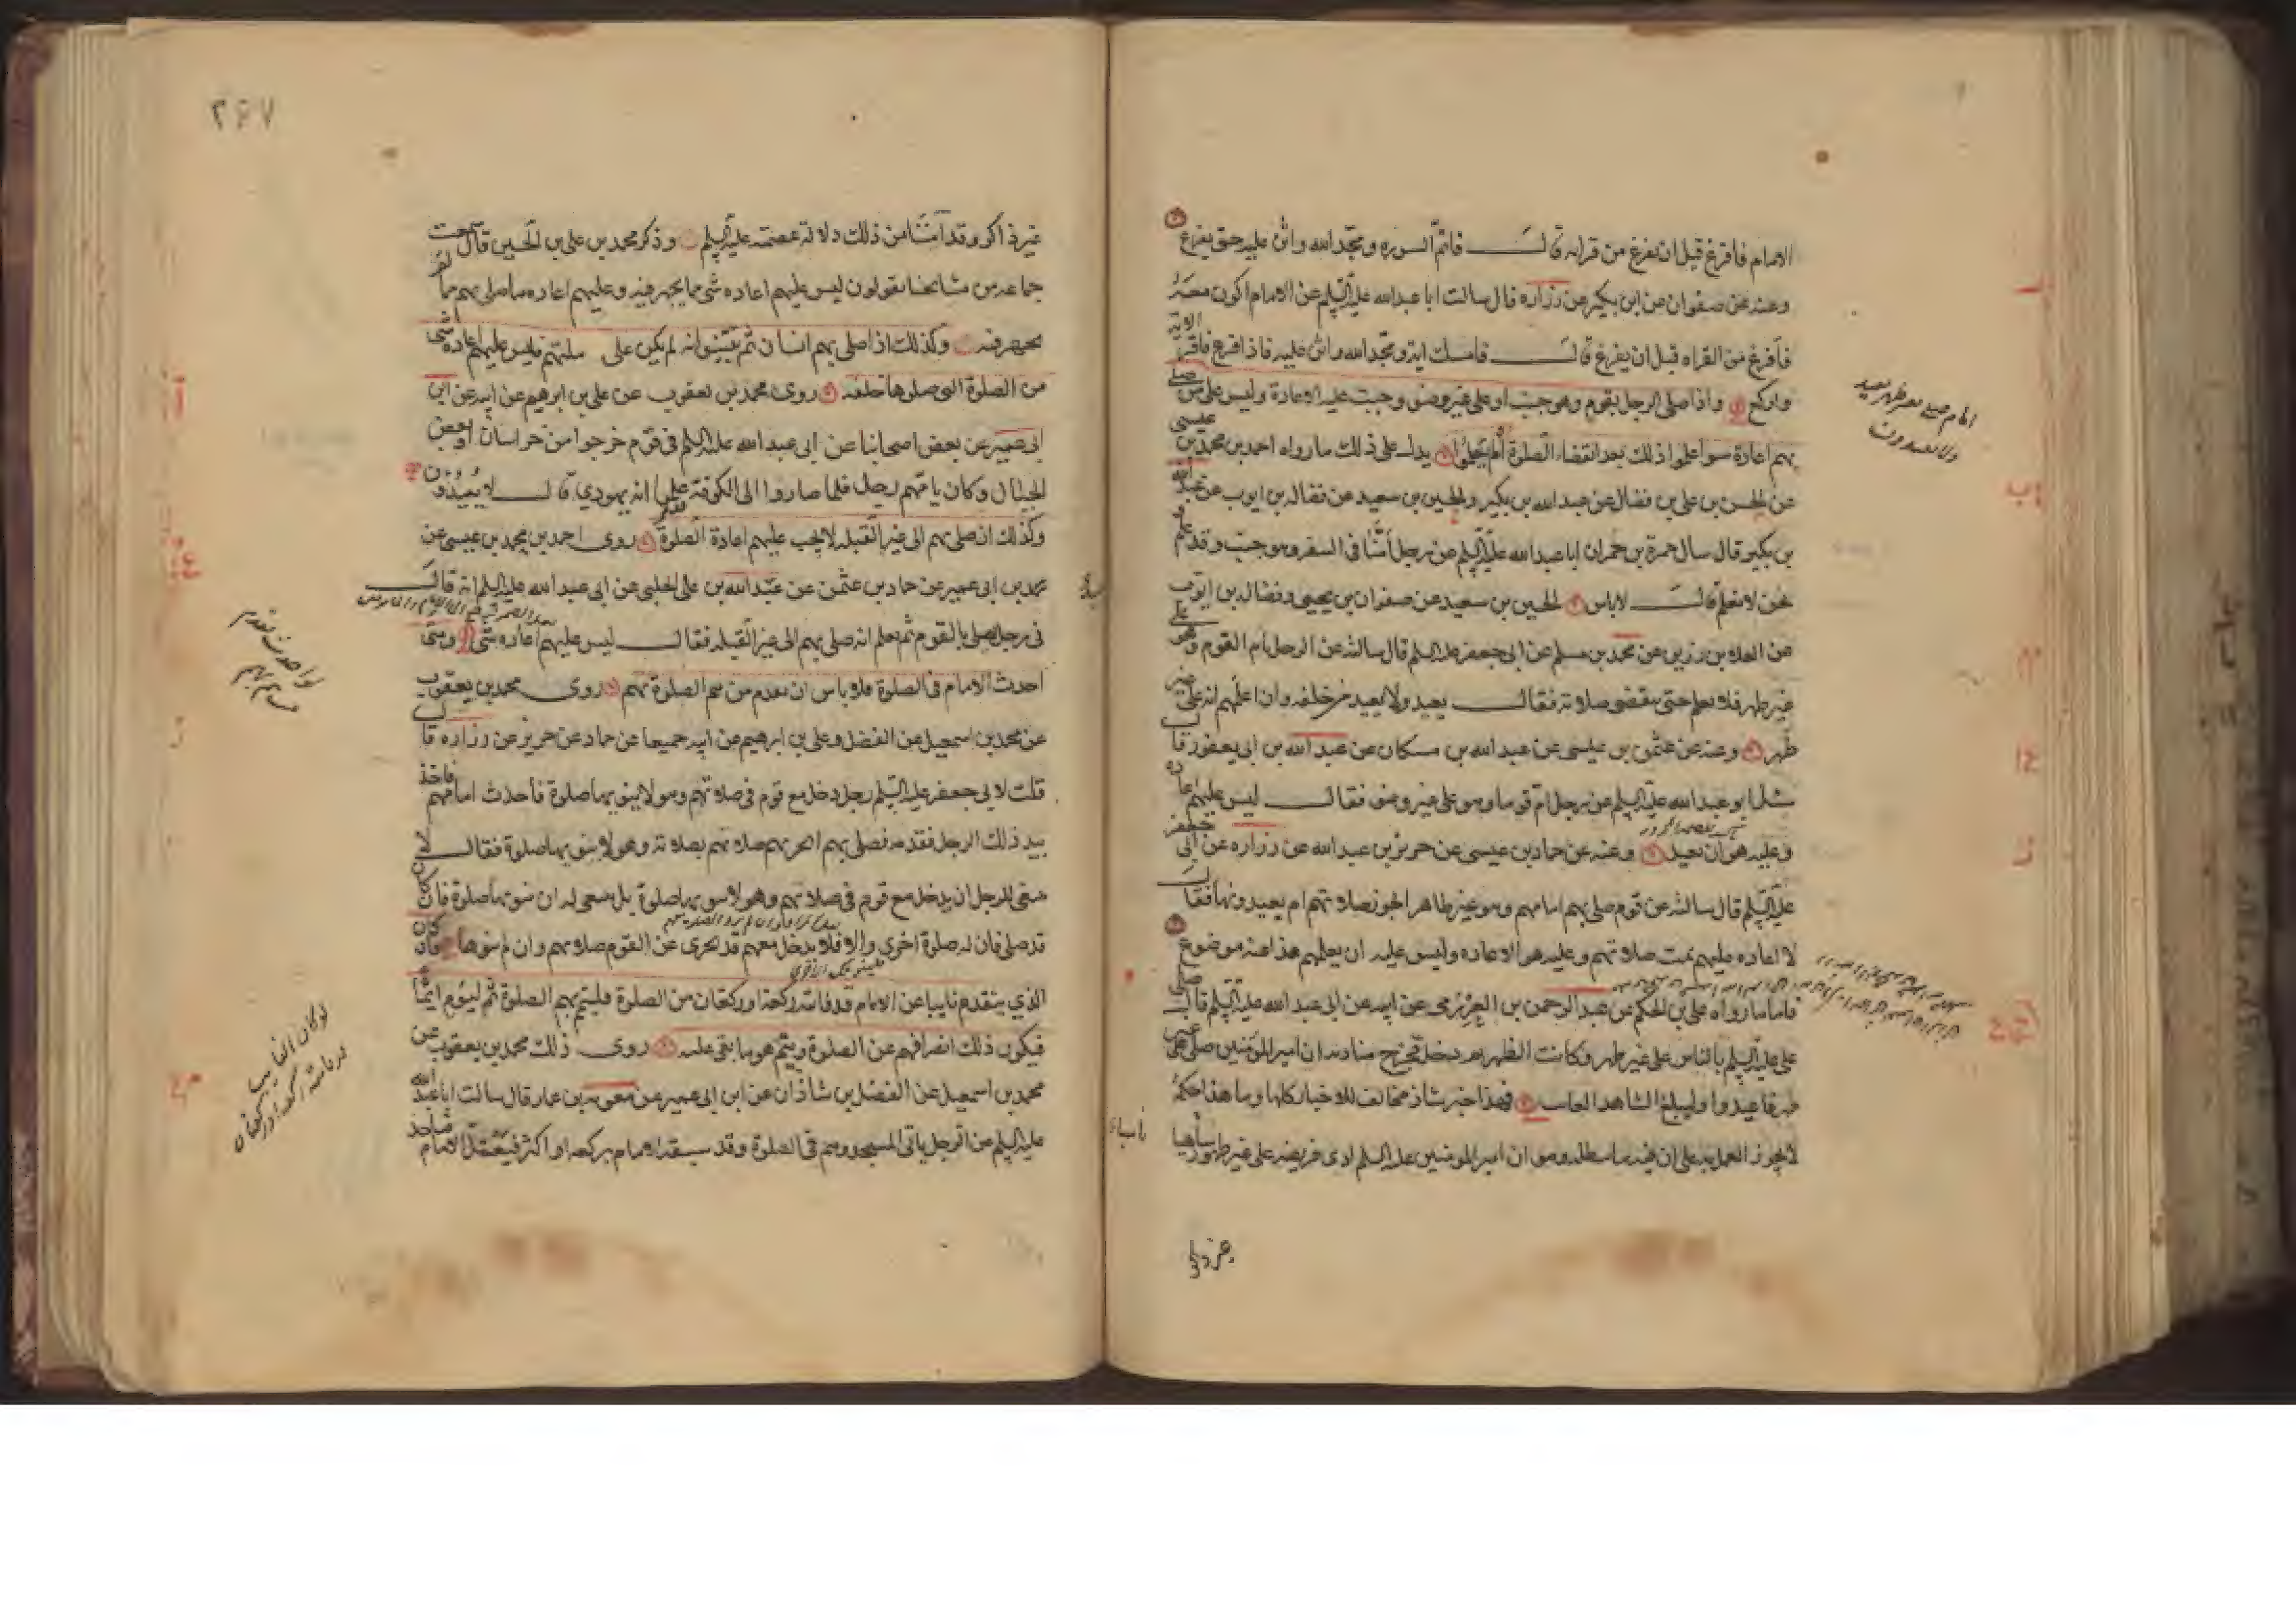 الامام فافرغ قبل ان يفرغ من قراته قال فاتم السوره ومجد الله واثن عليه حتى يفرغ
وعنه عن صفوان عن ابن بكير عن زراره قال سالت ابا عبد الله عليه السلم عن الامام اكون معه
فأفرغ من القراه قبل ان يفرغ قال فامسك اية ومجد الله واثن عليه فاذا فرغ فاقرء الاية
واركع واذا صلى الرجل بقوم وهو جنب او على غير وضوء وجبت عليه الاعادة وليس على من صلى
بهم اعادة سوا علموا ذلك بعد انقضاء الصلوة ام لم يعلموا يدل على ذلك ما رواه احمد بن محمد بن عيسى
عن الحسن بن على بن فضال عن عبد الله بن بكير والحسين بن سعيد عن فضاله بن ايوب عن عبد الله
بن بكير قال سال حمزة بن حمران ابا عبد الله عليه السلم عن رجل أمنا فى السفر وهو جنب وقد علم و
نحن لا نعلم قال لاباس الحسين بن سعيد عن صفوان بن يحيى وفضاله بن ايوب
عن العلا بن رزين عن محمد بن مسلم عن ابى جعفر عليه السلم قال سالته عن الرجل يام القوم وهو على
غير طهر فلا يعلم حتى ينقضى صلاته فقال يعيد ولا يعيد من خلفه وان اعلمهم انه على غير
طهر وعنه عن عثمن بن عيسى عن عبد الله بن مسكان عن عبد الله بن ابى يعفور قال
سئل ابو عبد الله عليه السلم عن رجل ام قوما وهو على غير وضوء فقال ليس عليهم اعاده
وعليه هو ان يعيد وعنه عن حماد بن عيسى عن حريز بن عبد الله عن زراره عن ابى جعفر
عليه السلم قال سالته عن قوم صلى بهم امامهم وهو غير طاهر اتجوز صلاتهم ام يعيدونها فقال
لا اعاده عليهم تمت صلاتهم وعليه هو الاعاده وليس عليه ان يعلمهم هذا عنه موضوع
فاما ما رواه على بن الحكم عن عبد الرحمن بن العرزمى عن ابيه عن ابى عبد الله عليه السلم قال صلى
على عليه السلم بالناس على غير طهر وكانت الظهر ثم دخل فخرج مناديه ان امير المؤمنين صلى على غير
طهر فاعيدوا وليبلغ الشاهد الغايب فهذا خبر شاذ مخالف للاخبار كلها وما هذا حكمه
لا يجوز العمل به على ان فيه ما يبطله وهو ان امير المومنين عليه السلم ادى فريضه على غير طهور ساهيا
امام صلى بغير طهر يعيد
ولا يعيدون
غير ذاكر
٢٤٧
غير ذاكر وقد آمننا من ذلك دلالة عصمته عليه السلم وذكر محمد بن على بن الحسين قال سمعت
جماعه من مشايخنا يقولون ليس عليهم اعاده شى مما يجهر فيه وعليهم اعاده ما صلى بهم مما لم
يجهر فيه وكذلك اذا صلى بهم انسان ثم تبينوا انه لم يكن على ملتهم فليس عليهم اعاده شى
من الصلوة التى صلوها خلفه روى محمد بن يعقوب عن على بن ابرهيم عن ابيه عن ابن
ابى عمير عن بعض اصحابنا عن ابى عبد الله عليه السلم فى قوم خرجوا من خراسان او بعض
الجبال وكان يامهم رجل فلما صاروا الى الكوفة علموا انه يهودي قال لا يعيدون
وكذلك ان صلى بهم الى غير القبله لا يجب عليهم اعادة الصلوة روى احمد بن محمد بن عيسى عن
محمد بن ابى عمير عن حماد بن عثمن عن عبد الله بن على الحلبى عن ابى عبد الله عليه السلم انه قال
فى رجل يصلى بالقوم ثم يعلم انه صلى بهم الى غير القبله فقال ليس عليهم اعاده شى ومتى
احدث الامام فى الصلوة فلا باس ان يقدم من يتم الصلوة بهم روى محمد بن يعقوب
عن محمد بن اسمعيل عن الفضل وعلى بن ابرهيم عن ابيه جميعا عن حماد عن حريز عن زراره قال
قلت لابى جعفر عليه السلم رجل دخل مع قوم فى صلاتهم وهو لا ينويها صلوة فأحدث امامهم فاخذ
بيد ذلك الرجل فقدمه فصلى بهم اتجزيهم صلاتهم بصلاته وهو لا ينويها صلوة فقال لا
ينبغى للرجل ان يدخل مع قوم فى صلاتهم وهو لا ينويها صلوة بل ينبغى له ان ينويها صلوة فان كان
قد صلى فان له صلوة اخرى والا فلا يدخل معهم قد تجزى عن القوم صلاتهم وان لم ينوها فان كان
الذي يتقدم نايبا عن الامام قد فاتته ركعة او ركعتان من الصلوة فليتم بهم الصلوة ثم ليوم ايماء
فيكون ذلك انصرافهم عن الصلوة ويتم هو ما بقى عليه روى ذلك محمد بن يعقوب عن
محمد بن اسمعيل عن الفضل بن شاذان عن ابن ابى عمير عن معويه بن عمار قال سالت ابا عبد الله
عليه السلم عن الرجل ياتى المسجد وهم فى الصلوة وقد سبقه الامام بركعه او اكثر فيعتل الامام فياخذ